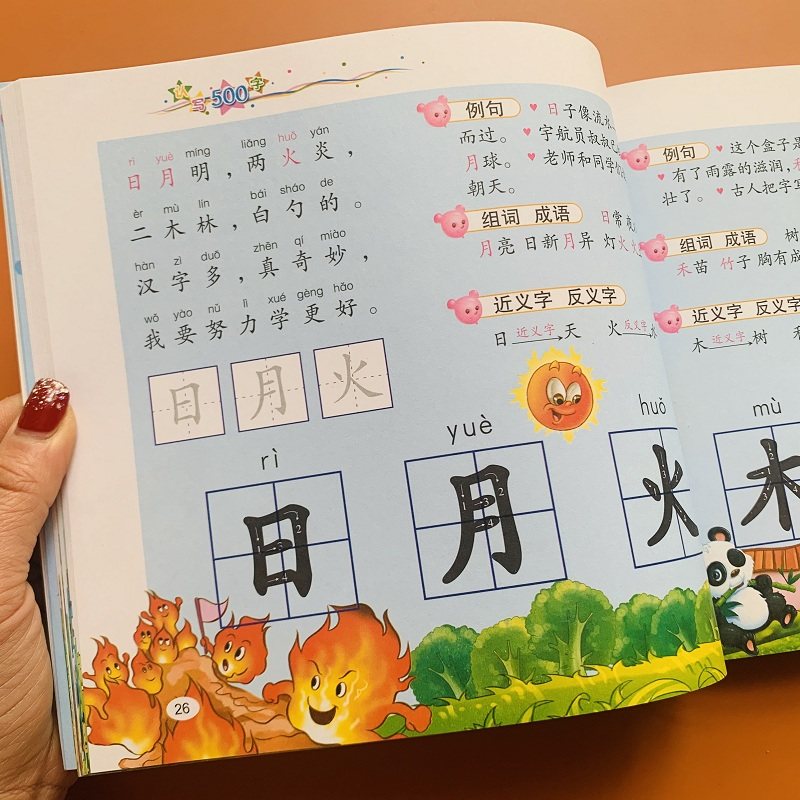 认写500字
rì yuè míng liǎng huǒ yán
日月明，两火炎，
èr mù lín bái sháo de
二木林，白勺的。
hàn zì duō zhēn qí miào
汉字多，真奇妙，
wǒ yào nǔ lì xué gèng hǎo
我要努力学更好。
日 月 火
例句 ♥日子像流水
而过。♥宇航员叔叔已
月球。♥老师和同学们
朝天。
组词 成语 日常
月亮 日新月异 灯火
近义字 反义字
日 近义字 天 火 反义字 水
rì yuè huǒ
日 月 火
1 2 3 4 1 2 3 4
26
例句 ♥这个盒子是
♥有了雨露的滋润，禾
壮了。♥古人把字写
组词 成语 树
禾苗 竹子 胸有成
近义字 反义字
木 近义字 树
mù
木